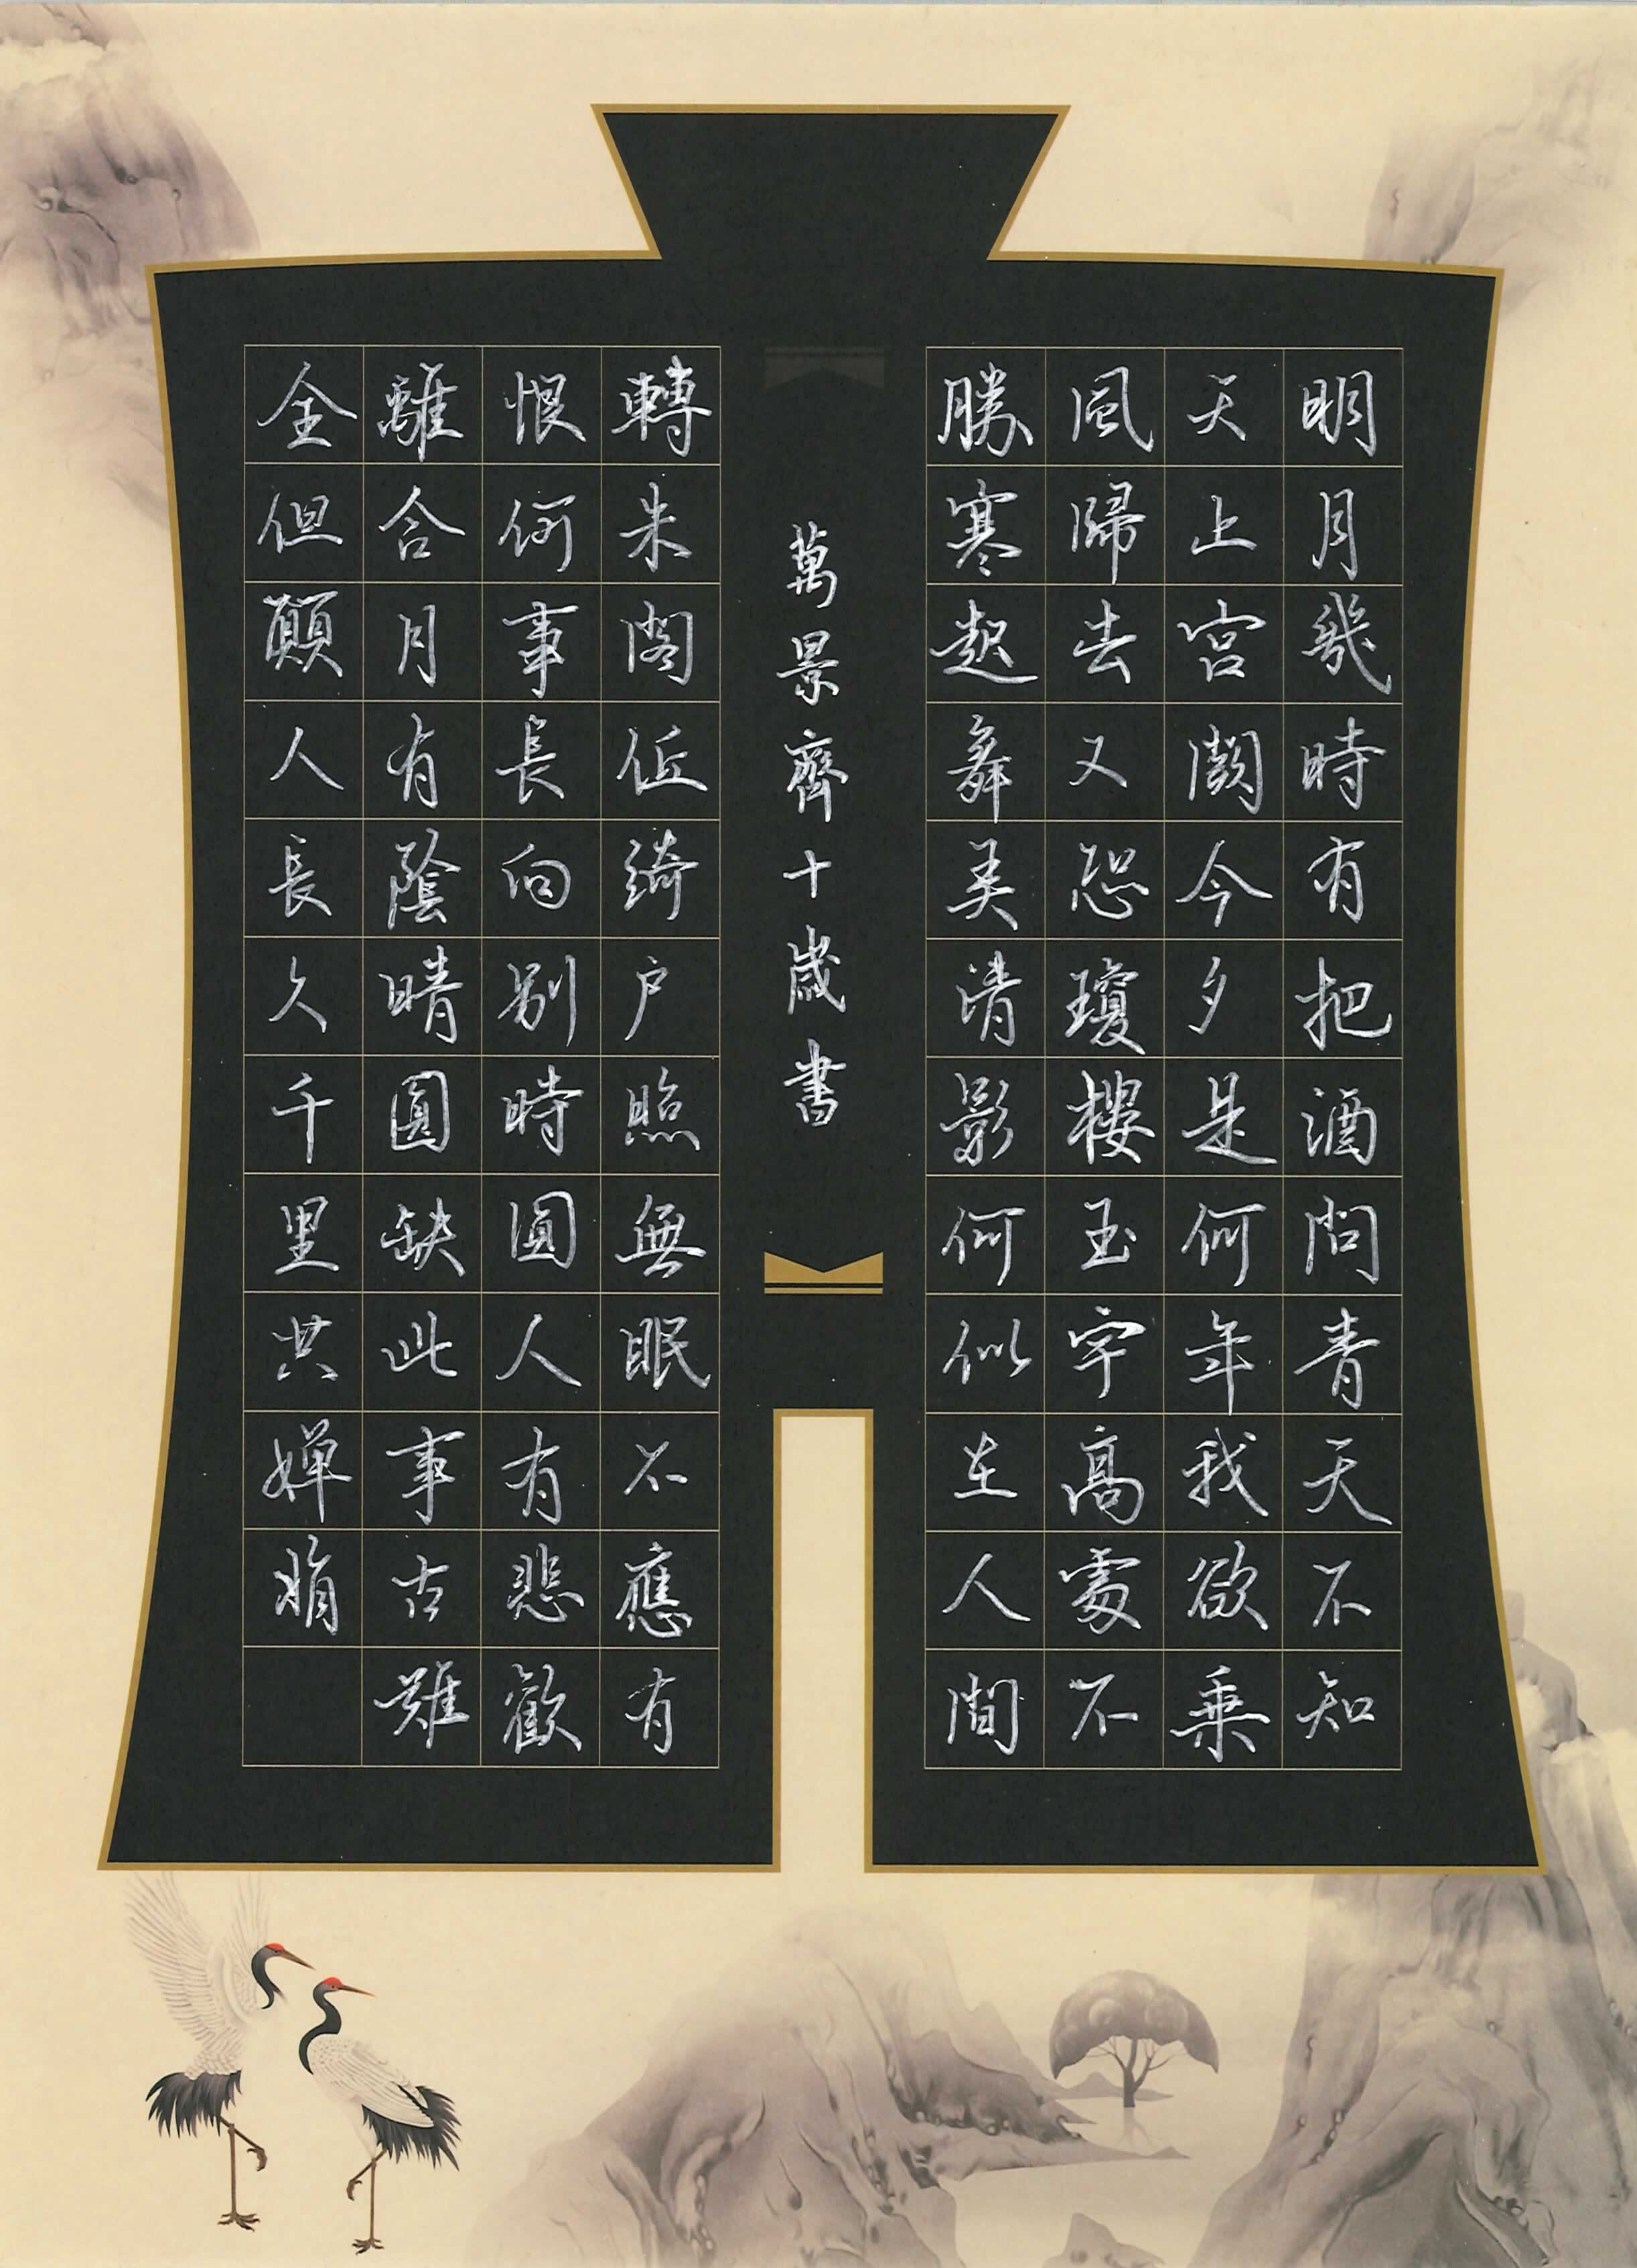 明月幾時有把酒問青天不知
天上宮闕今夕是何年我欲乘
風歸去又恐瓊樓玉宇高處不
勝寒起舞弄清影何似在人間
萬景齊十歲書
轉朱閣低綺户照無眠不應有
恨何事長向別時圓人有悲歡
離合月有陰晴圓缺此事古難
全但願人長久千里共嬋娟